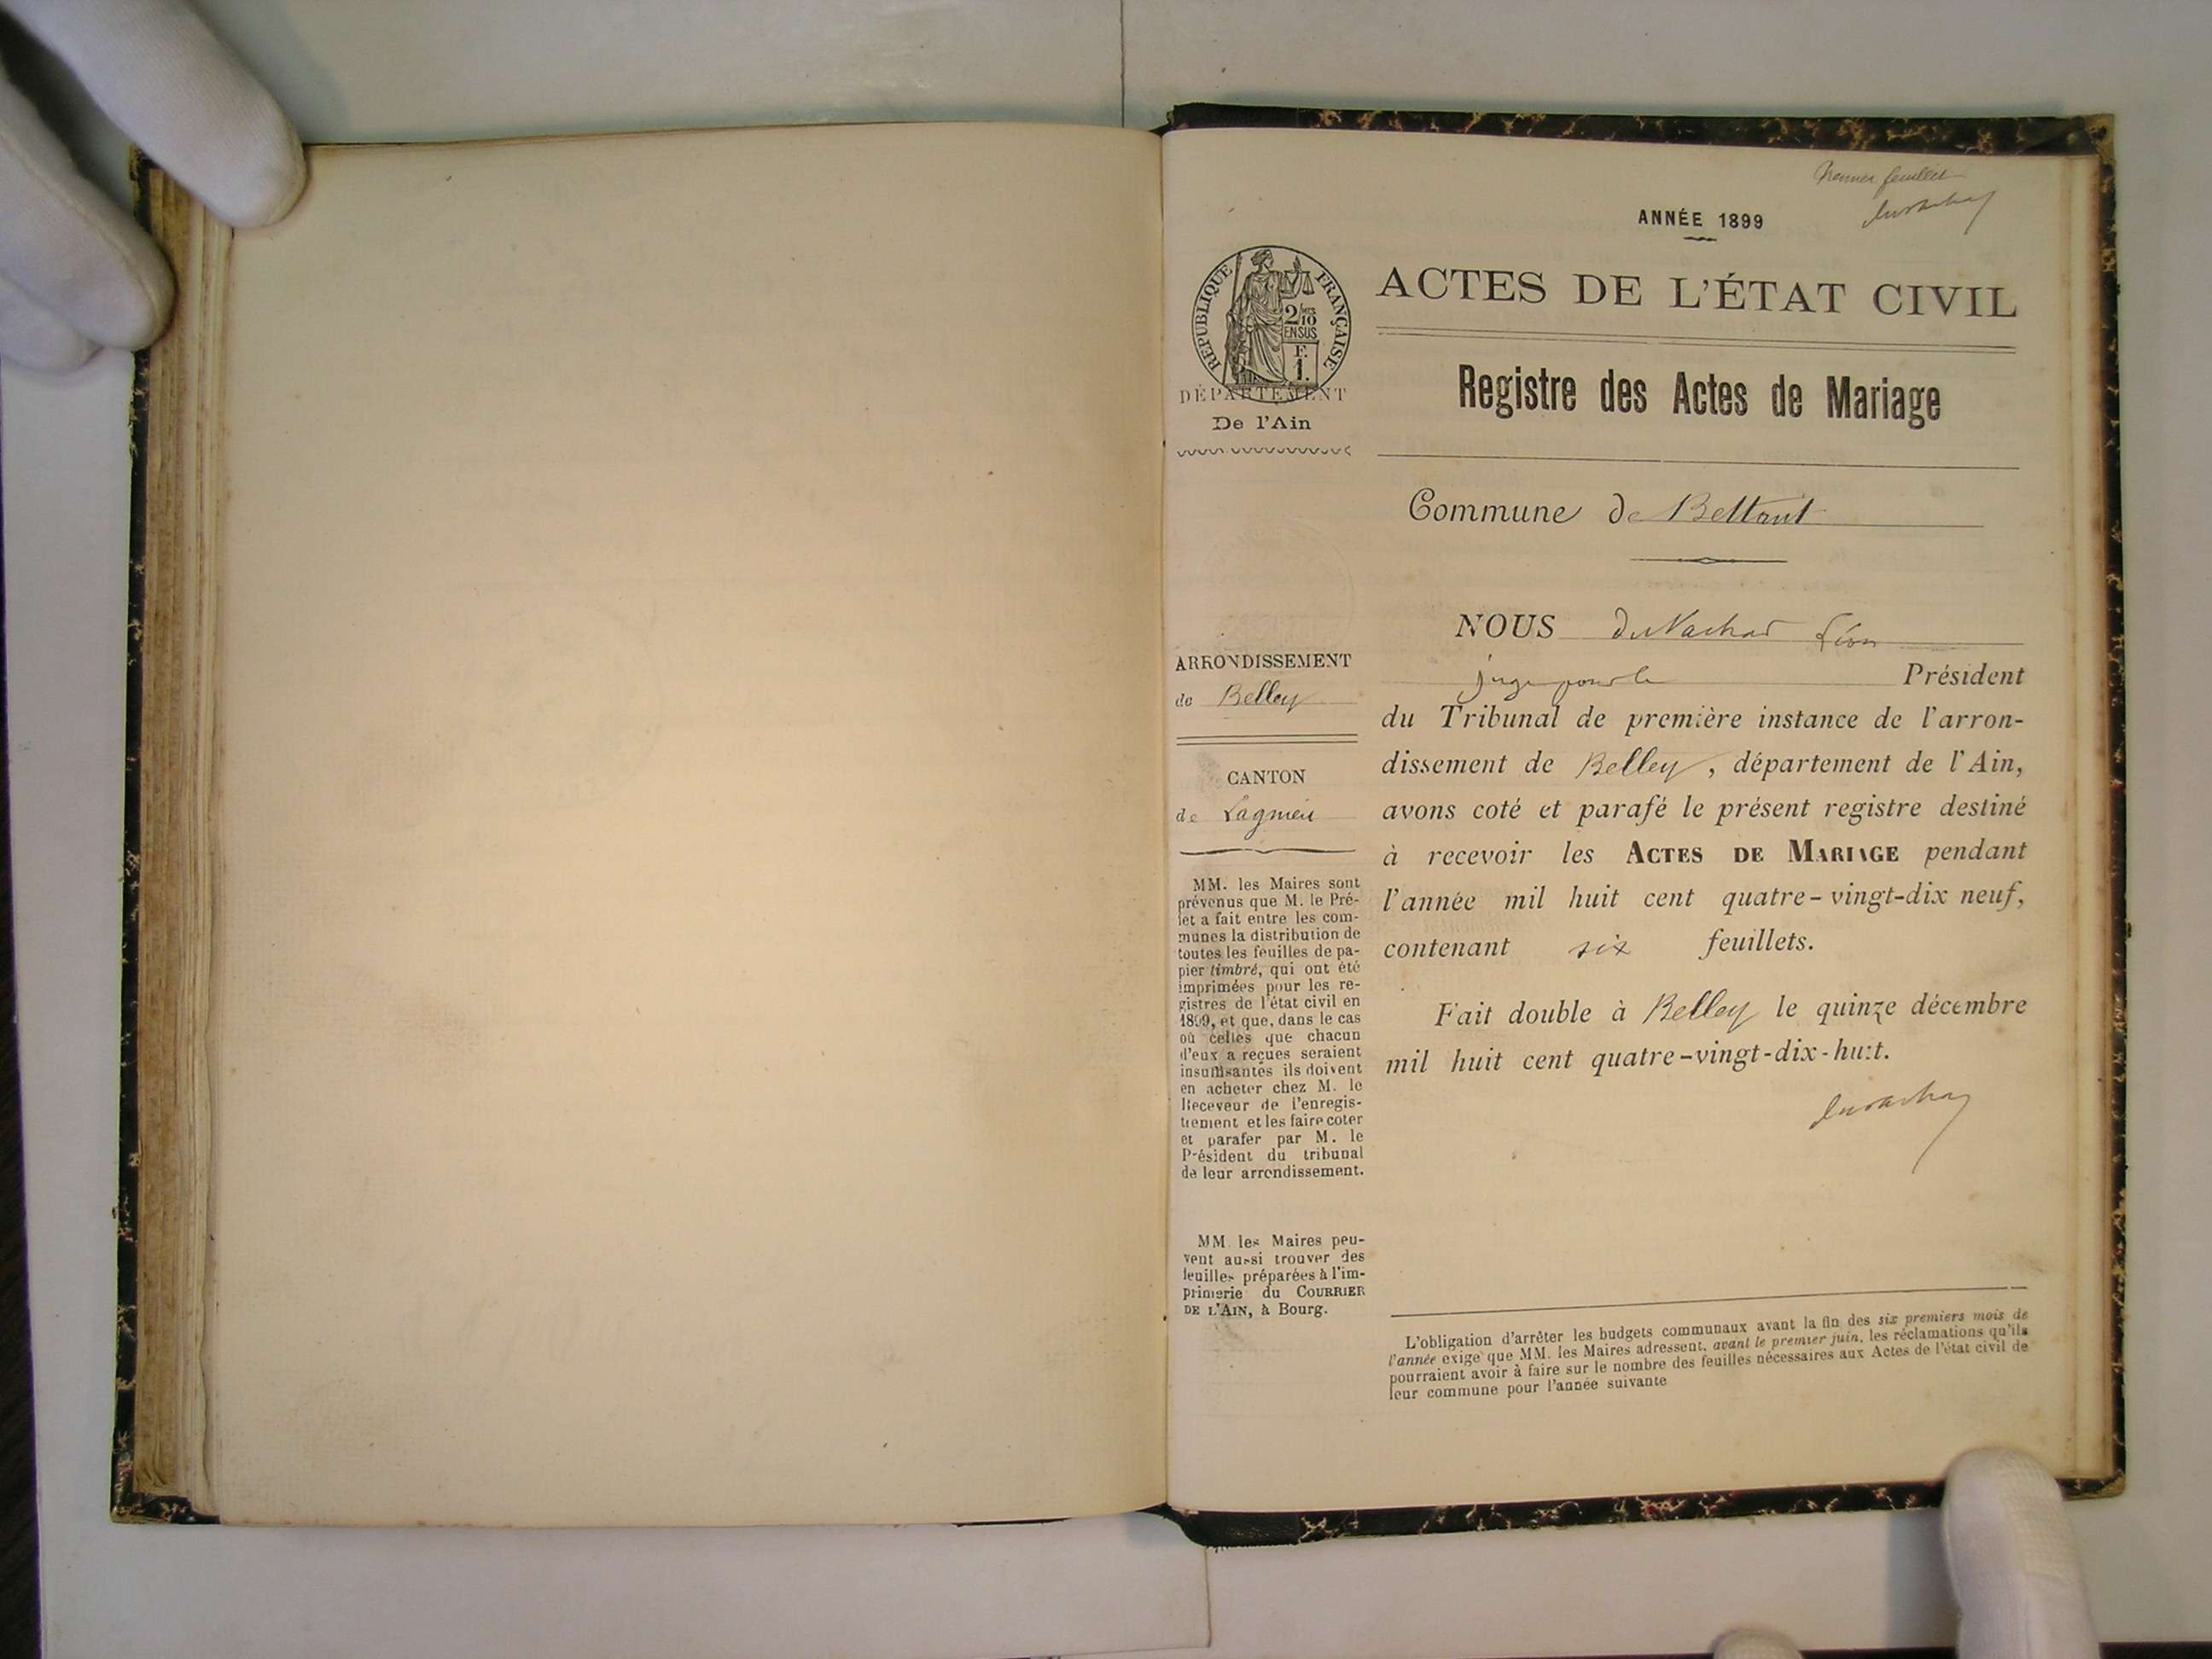 Premier feuillet
ANNÉE 1899
ACTES DE L'ÉTAT CIVIL
RÉPUBLIQUE FRANÇAISE
2/10
EN SUS
F.
1.
DÉPARTEMENT
De l'Ain
Registre des Actes de Mariage
Commune de Bettant
ARRONDISSEMENT
de Belley
CANTON
de Lagnieu
MM. les Maires sont
prévenus que M. le Pré-
fet a fait entre les com-
munes la distribution de
toutes les feuilles de pa-
pier timbré, qui ont été
imprimées pour les re-
gistres de l'état civil en
1899, et que, dans le cas
où celles que chacun
d'eux a reçues seraient
insuffisantes ils doivent
en acheter chez M. le
Receveur de l'enregis-
trement et les faire coter
et parafer par M. le
Président du tribunal
de leur arrondissement.
MM. les Maires peu-
vent aussi trouver des
feuilles préparées à l'im-
primerie du COURRIER
DE L'AIN, à Bourg.
NOUS duVachat Léon
juge pour le Président
du Tribunal de première instance de l'arron-
dissement de Belley, département de l'Ain,
avons coté et parafé le présent registre destiné
à recevoir les ACTES DE MARIAGE pendant
l'année mil huit cent quatre-vingt-dix neuf,
contenant six feuillets.
Fait double à Belley le quinze décembre
mil huit cent quatre-vingt-dix-huit.
L'obligation d'arrêter les budgets communaux avant la fin des six premiers mois de
l'année exige que MM. les Maires adressent, avant le premier juin, les réclamations qu'ils
pourraient avoir à faire sur le nombre des feuilles nécessaires aux Actes de l'état civil de
leur commune pour l'année suivante